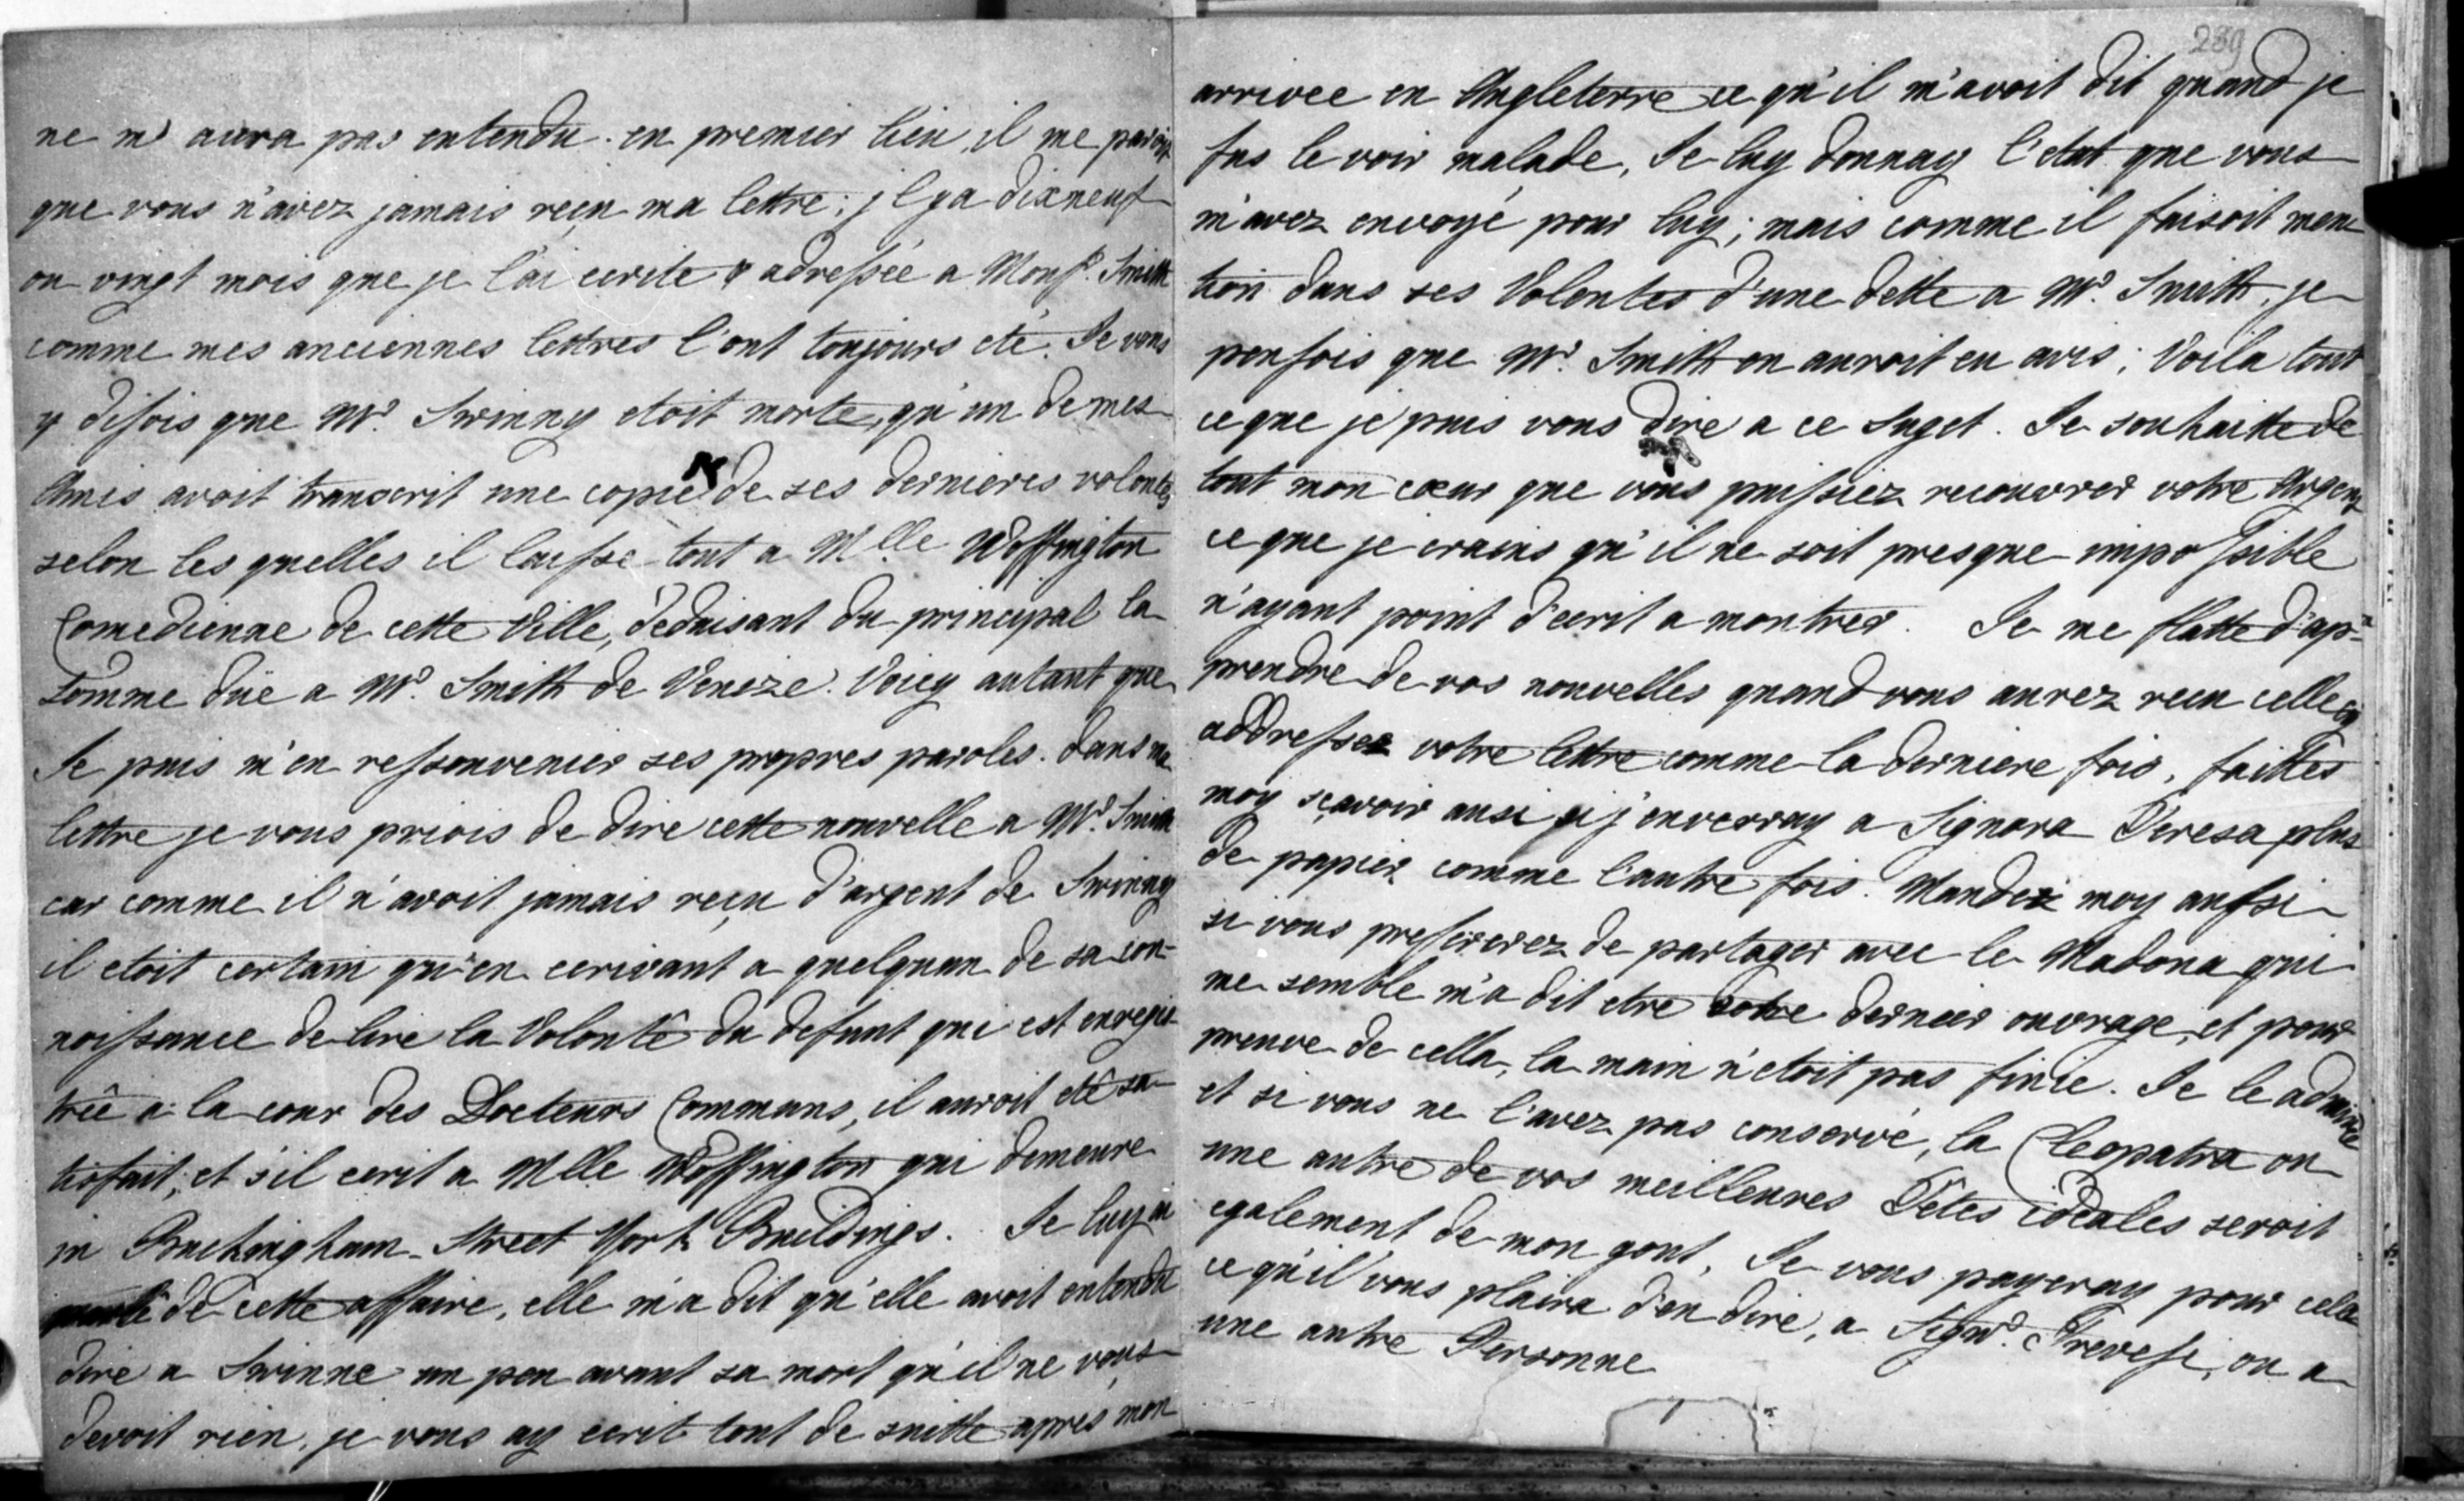 ne m' aura pas entendu. en premier lieu, il me paroit
que vous n'avez jamais reçu ma lettre; jl ya dixneuf
ou vingt mois que je l'ai ecrite & adressée a Monsr. Smith
comme mes anciennes lettres l'ont toujours eté. Je vous
y disois que Mr. Swinny etoit morte, qu'un de mes
Amis avoit transcrit une copie de ses dernieres volontes
selon les quelles il laisse tout a Mlle Woffington
Comedienne de cette Ville, deduisant du principal la
somme düe a Mr. Smith de Venize. Voicy autant que
Je puis m'en ressouvenier ses propres paroles. dans ma
lettre je vous priois de dire cette nouvelle a Mr. Smith
car comme il n'avoit jamais reçu d'argent de Swinny
il etoit certain qu'en ecrivant a quelquun de sa con-
noissance de lire la Volonté du defunt qui est enregis-
trée a la cour des Docteurs Communs, il auroit eté sa-
tisfait; et s'il ecrit a Mlle Woffington qui demeure
in Buckingham-Street York Buildings. Je luy ai
parlé de cette affaire, elle m'a dit qu'elle avoit entendu
dire a Swinne un peu avant sa mort qu'il ne vous
devoit rien. je vous ay ecrit tout de suitte apres mon
239
arrivee en Angleterre ce qu'il m'avoit dit quand je
fus le voir malade, Je luy donnay l'etat que vous
m'avez envoyé pour luy; mais comme il faisoit menc
tion dans ses Volontes d'une dette a Mr. Smith, je
pensois que Mr. Smith en auroit eu avis; Voila tout
ce que je puis vous dire a ce suget. Je souhaitte de
tout mon cœur que vous puissiez recouvrer votre Argent
ce que je crains qu'il ne soit presque impossible
n'ayant point d'ecrit a montrer. Je me flatte d'ap=
prendre de vos nouvelles quand vous aurez recu celle cy
addressez votre lettre comme la derniere fois, faittes
moy sçavoir ausi si j'enverray a Signora Teresa plus
de papier comme l'autre fois. Mandez moy aussi
si vous prefererez de partager avec le Madona qui
me semble m'a dit etre votre dernier ouvrage, et pour
preuve de cella, la main n'etoit pas finie. Je le admire
et si vous ne l'avez pas conservé, la Cleopatra ou
une autre de vos meilleures Têtes idéales seroit
egalement de mon gout, Je vous payeray pour cela
ce qu'il vous plaira d'en dire, a Signr. Trevese, ou a
une autre Personne